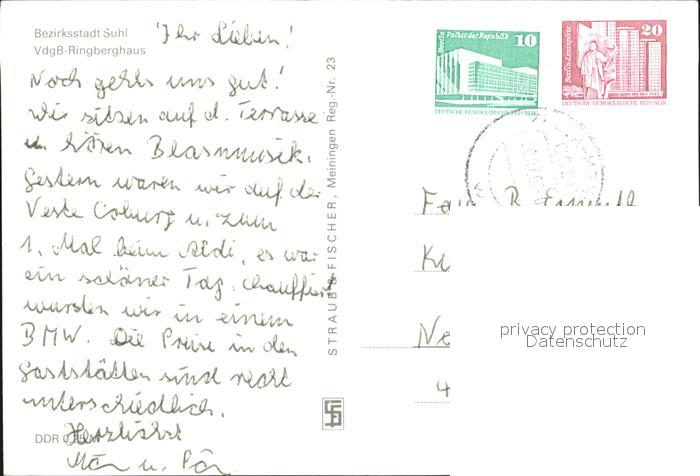 Bezirksstadt Suhl
VdgB-Ringberghaus
Ihr Lieben!
Noch gehts uns gut!
Wir sitzen auf d. Terrasse
u. hören Blasmusik.
Gestern waren wir auf der
Veste Coburg u. zum
1. Mal beim Aldi, es war
ein schöner Tag, chauffiert
wurden wir in einem
BMW. Die Preise in den
Gaststätten sind recht
unterschiedlich.
Herzlichst
u.
DDR 0,
STRAUB & FISCHER, Meiningen Reg.-Nr. 23
Berlin Palast der Republik
10
DEUTSCHE DEMOKRATISCHE REPUBLIK
Berlin-Leninplatz
20
DEUTSCHE DEMOKRATISCHE REPUBLIK
Fa
Ne
4
privacy protection
Datenschutz